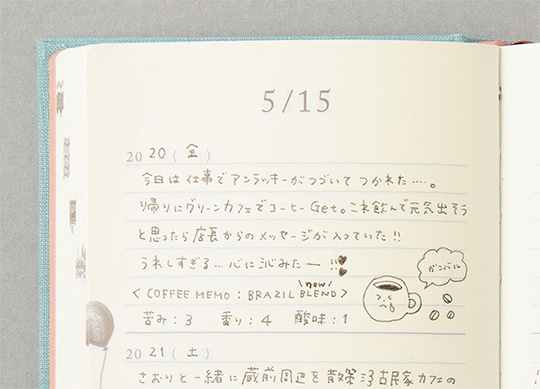 5/15
2020(金)
今日は仕事でアンラッキーがつづいてつかれた……。
帰りにグリーンカフェでコーヒーGet。これ飲んで元気出そう
と思ったら店長からのメッセージが入っていた!!
うれしすぎる…心に沁みたー!!
ガンバル
new
<COFFEE MEMO:BRAZIL BLEND>
苦み:3 香り:4 酸味:1
2021(土)
さおりと一緒に蔵前周辺を散策する古民家カフェの